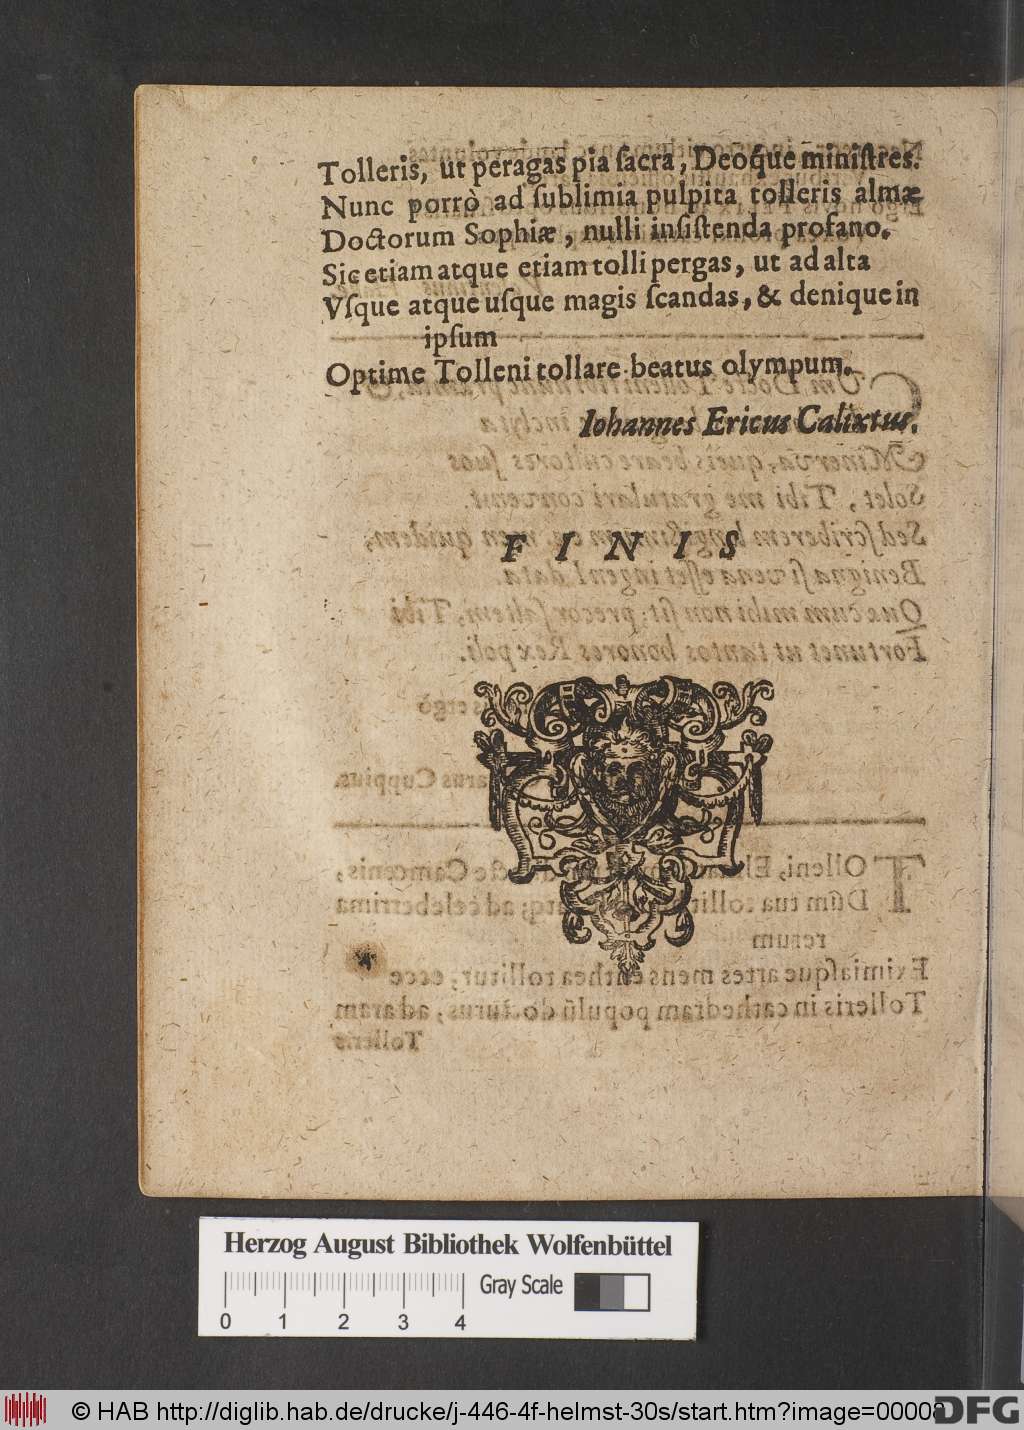 Tolleris, ut peragas pia ſacra, Deoq́ue miniſtres.
Nunc porrò ad ſublimia pulpita tolleris almæ
Doctorum Sophiæ, nulli inſiſtenda profano.
Sic etiam atque etiam tolli pergas, ut ad alta
Vſque atque uſque magis ſcandas, & denique in
ipſum
Optime Tolleni tollare beatus olympum.
Iohannes Ericus Calixtus.
FINIS
Herzog August Bibliothek Wolfenbüttel
Gray Scale
0 1 2 3 4
© HAB http://diglib.hab.de/drucke/j-446-4f-helmst-30s/start.htm?image=00008
DFG